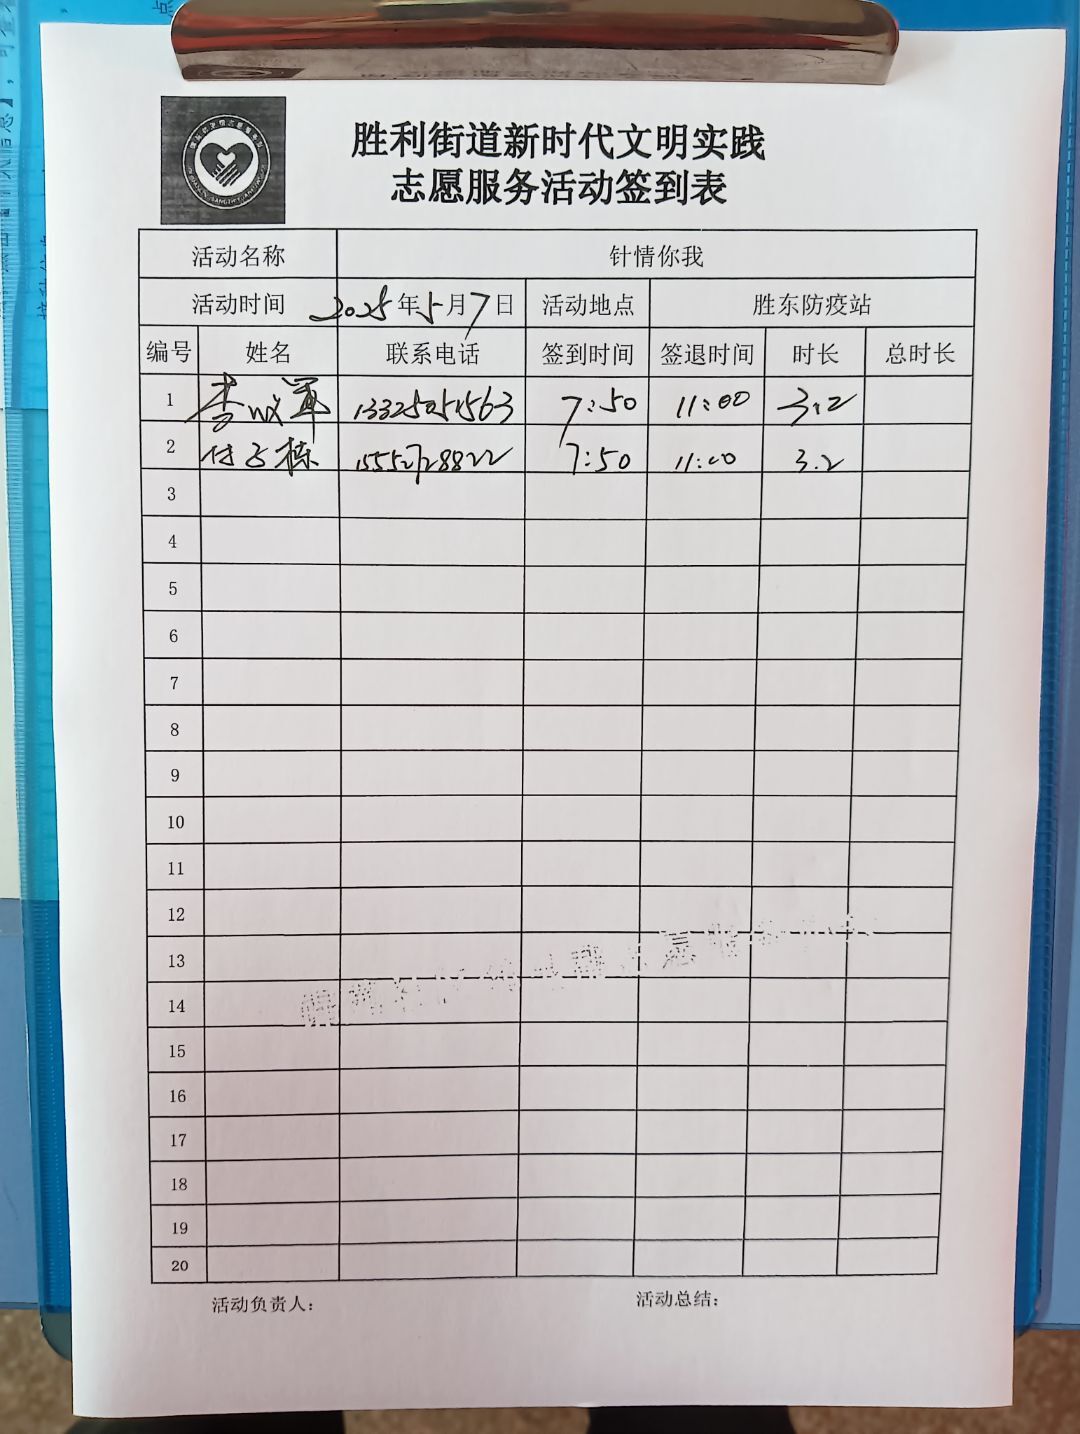 胜利街道新时代文明实践
志愿服务活动签到表
活动名称 针情你我
活动时间 2025年5月7日 活动地点 胜东防疫站
编号 姓名 联系电话 签到时间 签退时间 时长 总时长
1 李 军 13325051563 7:50 11:00 3.2
2 付子栋 15552728822 7:50 11:00 3.2
3
4
5
6
7
8
9
10
11
12
13
14
15
16
17
18
19
20
活动负责人：
活动总结：